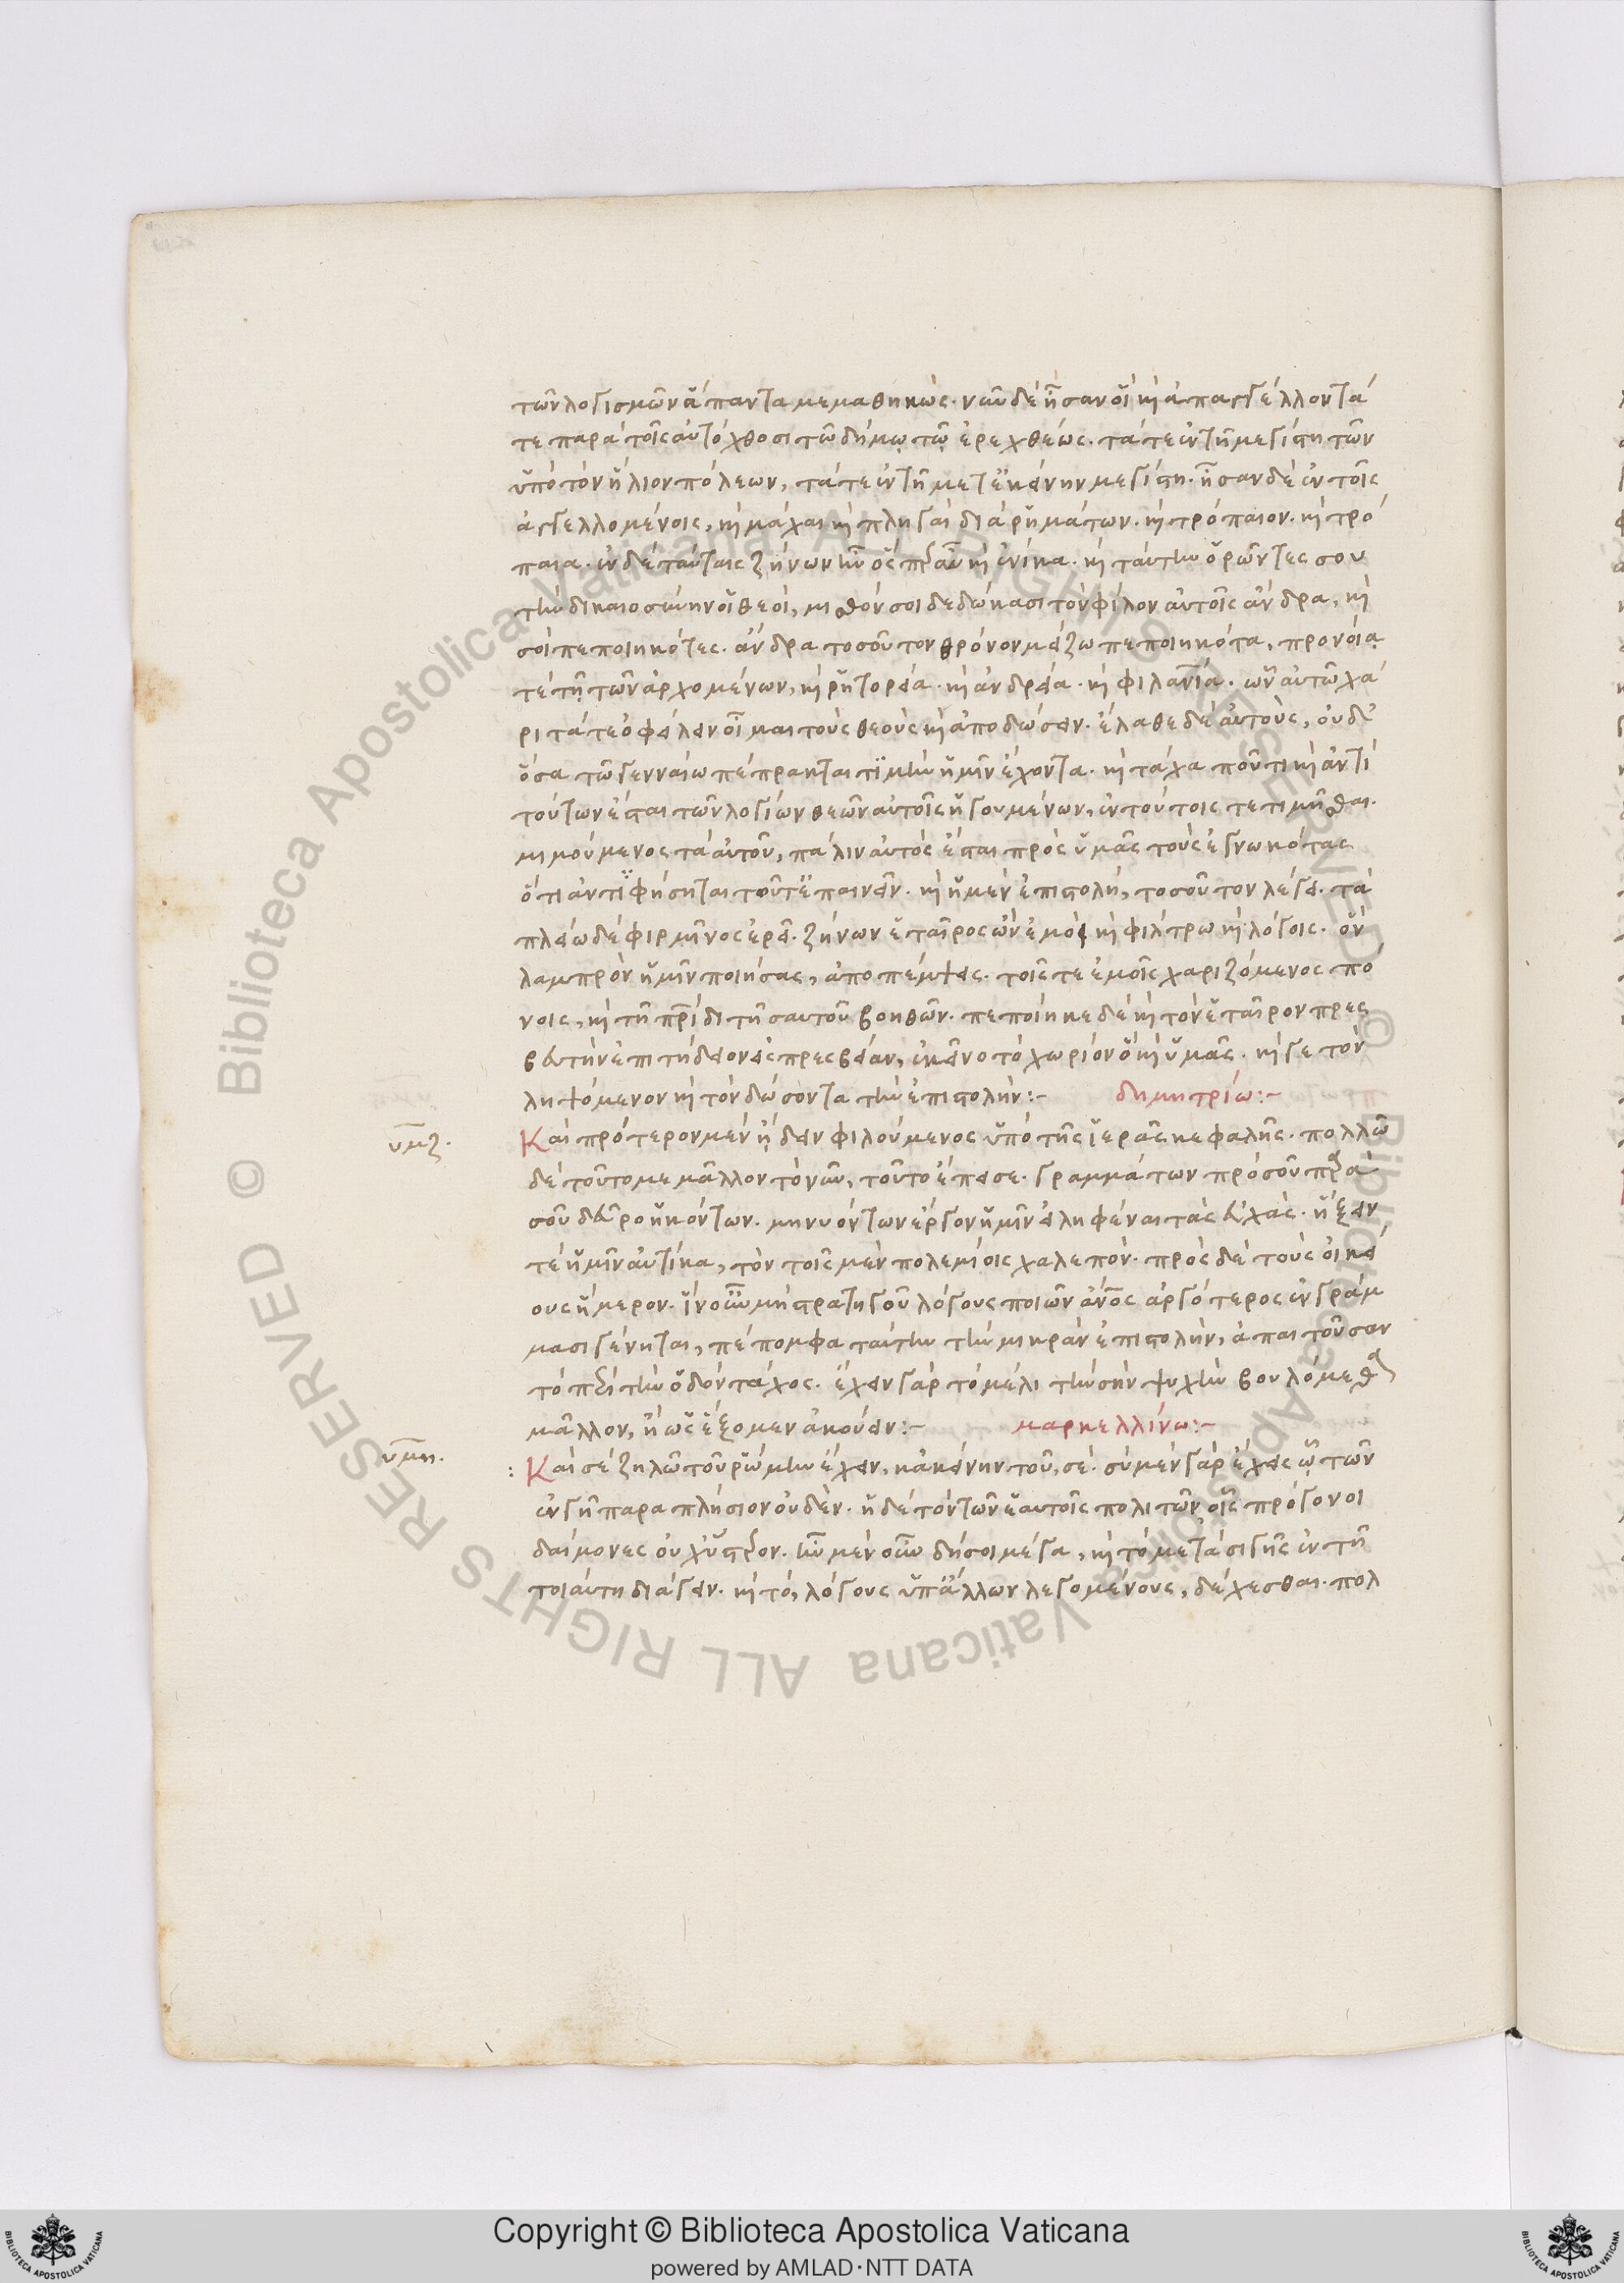 τῶν λογισμῶν ἅπαντα μεμαθηκώς. νῦν δὲ ἦσαν οἳ κỳ ἀπαγγέλλοντά
τε παρὰ τοῖς αὐτόχθοσι τῶ δήμῳ τῷ ἐρεχθέως. τά τε ἐν τῇ μεγίστη τῶν
ὑπὸ τὸν ἥλιον πόλεων, τά τε ἐν τῇ μετ' ἐκείνην μεγίστη. ἦσαν δὲ ἐν τοῖς
ἀγγελλομένοις, κỳ μάχαι κỳ πληγαὶ διὰ ῥημάτων. κỳ τρόπαιον. κỳ τρό
παια. ἐν δὲ ταύταις ζήνων ἦν ὃς κỳ ἐνίκα. κỳ ταύτην ὁρῶντες σου
τὴν δικαιοσύνην οἱ θεοὶ, μισθόν σοι δεδώκασι τὸν φίλον αὐτοῖς ἄνδρα, κỳ
σοὶ πεποιηκότες. ἄνδρα τοσοῦτον θρόνον μείζω πεποιηκότα, προνοίᾳ
τὲ τῇ τῶν ἀρχομένων, κỳ ῥητορεία. κỳ ἀνδρεία. κỳ φιλανία. ὧν αὐτῶ χά
ριτά τε ὀφείλειν οἶμαι τοὺς θεοὺς κỳ ἀποδώσειν. ἔλαθε δὲ αὐτοὺς, οὐδ'
ὅσα τῶ γενναίω πέπρακται τιμὴν ἡμῖν ἔχοντα. κỳ τάχα που τι κỳ ἀντὶ
τούτων ἔσται τῶν λογίων θεῶν αὐτοῖς ἡγουμένων, ἐν τούτοις τετιμῆσθαι.
μιμούμενος τὰ αὐτοῦ, πάλιν αὐτὸς ἔσται πρὸς ὑμᾶς τοὺς ἐγνωκότας
ὅτι ἀντιφήσηται τοῦτ' ἐπαινεῖν. κỳ ἡ μὲν ἐπιστολὴ, τοσοῦτον λέγει. τὰ
πλείω δὲ φιρμῖνος ἐρεῖ. ζήνων ἑταῖρος ὢν ἐμοὶ κỳ φίλτρω κỳ λόγοις. ὃν
λαμπρὸν ἡμῖν ποιήσας, ἀποπέμψεις. τοῖς τε ἐμοῖς χαριζόμενος πό
νοις, κỳ τῇ πρίδι τῇ σαυτοῦ βοηθῶν. πεποίηκε δὲ κỳ τὸν ἑταῖρον πρεσ
βευτὴν ἐπιτήδειον εἰς πρεσβείαν, ἐκεῖνο τὸ χωρίον ὃ κỳ ὑμᾶς. κỳ γε τὸν
ληψόμενον κỳ τὸν δώσοντα τὴν ἐπιστολήν:- δημητρίω:-
υμζ. Καὶ πρότερον μὲν ᾔδειν φιλούμενος ὑπὸ τῆς ἱερᾶς κεφαλῆς. πολλῶ
δὲ τοῦτό με μᾶλλον τὸ νῦν, τοῦτο ἔπεισε. γραμμάτων πρὸς οὓς παρὰ
σοῦ δεῦρο ἡκόντων. μηνυόντων ἔργον ἡμῖν εἰληφέναι τὰς εὐχάς. ἥξειν
τὲ ἡμῖν αὐτίκα, τὸν τοῖς μὲν πολεμίοις χαλεπὸν. πρὸς δὲ τοὺς οἰκεί
ους ἥμερον. ἵν' οὖν μὴ στρατηγοῦ λόγους ποιῶν ἀνος ἀργότερος ἐν γράμ
μασι γένηται, πέπομφα ταύτην τὴν μικρὰν ἐπιστολὴν, ἀπαιτοῦσαν
τὸ περὶ τὴν ὁδὸν τάχος. ἔχειν γὰρ τὸ μέλι τὴν σὴν ψυχὴν βουλόμεθα
μᾶλλον, ἢ ὡς ἕξομεν ἀκούειν:- μαρκελλίνω:-
υμη. Καὶ σὲ ζηλῶ τοῦ ῥώμην ἔχειν, κἀκείνην τοῦ, σέ. σὺ μὲν γὰρ ἔχεις ᾧ τῶν
ἐν γῇ παραπλήσιον οὐδέν. ἡ δὲ τὸν τῶν ἑαυτοῖς πολιτῶν, οἷς πρόγονοι
δαίμονες οὐχ ὕστρον. ἦν μὲν οὖν δή σοι μέγα, κỳ τὸ μετὰ σιγῆς ἐν τῇ
τοιαύτη διάγειν. κỳ τὸ, λόγους ὑπ' ἄλλων λεγομένους, δέχεσθαι. πολ
Copyright © Biblioteca Apostolica Vaticana
powered by AMLAD·NTT DATA
BIBLIOTECA APOSTOLICA VATICANA
BIBLIOTECA APOSTOLICA VATICANA
© Biblioteca Apostolica Vaticana ALL RIGHTS RESERVED
© Biblioteca Apostolica Vaticana ALL RIGHTS RESERVED